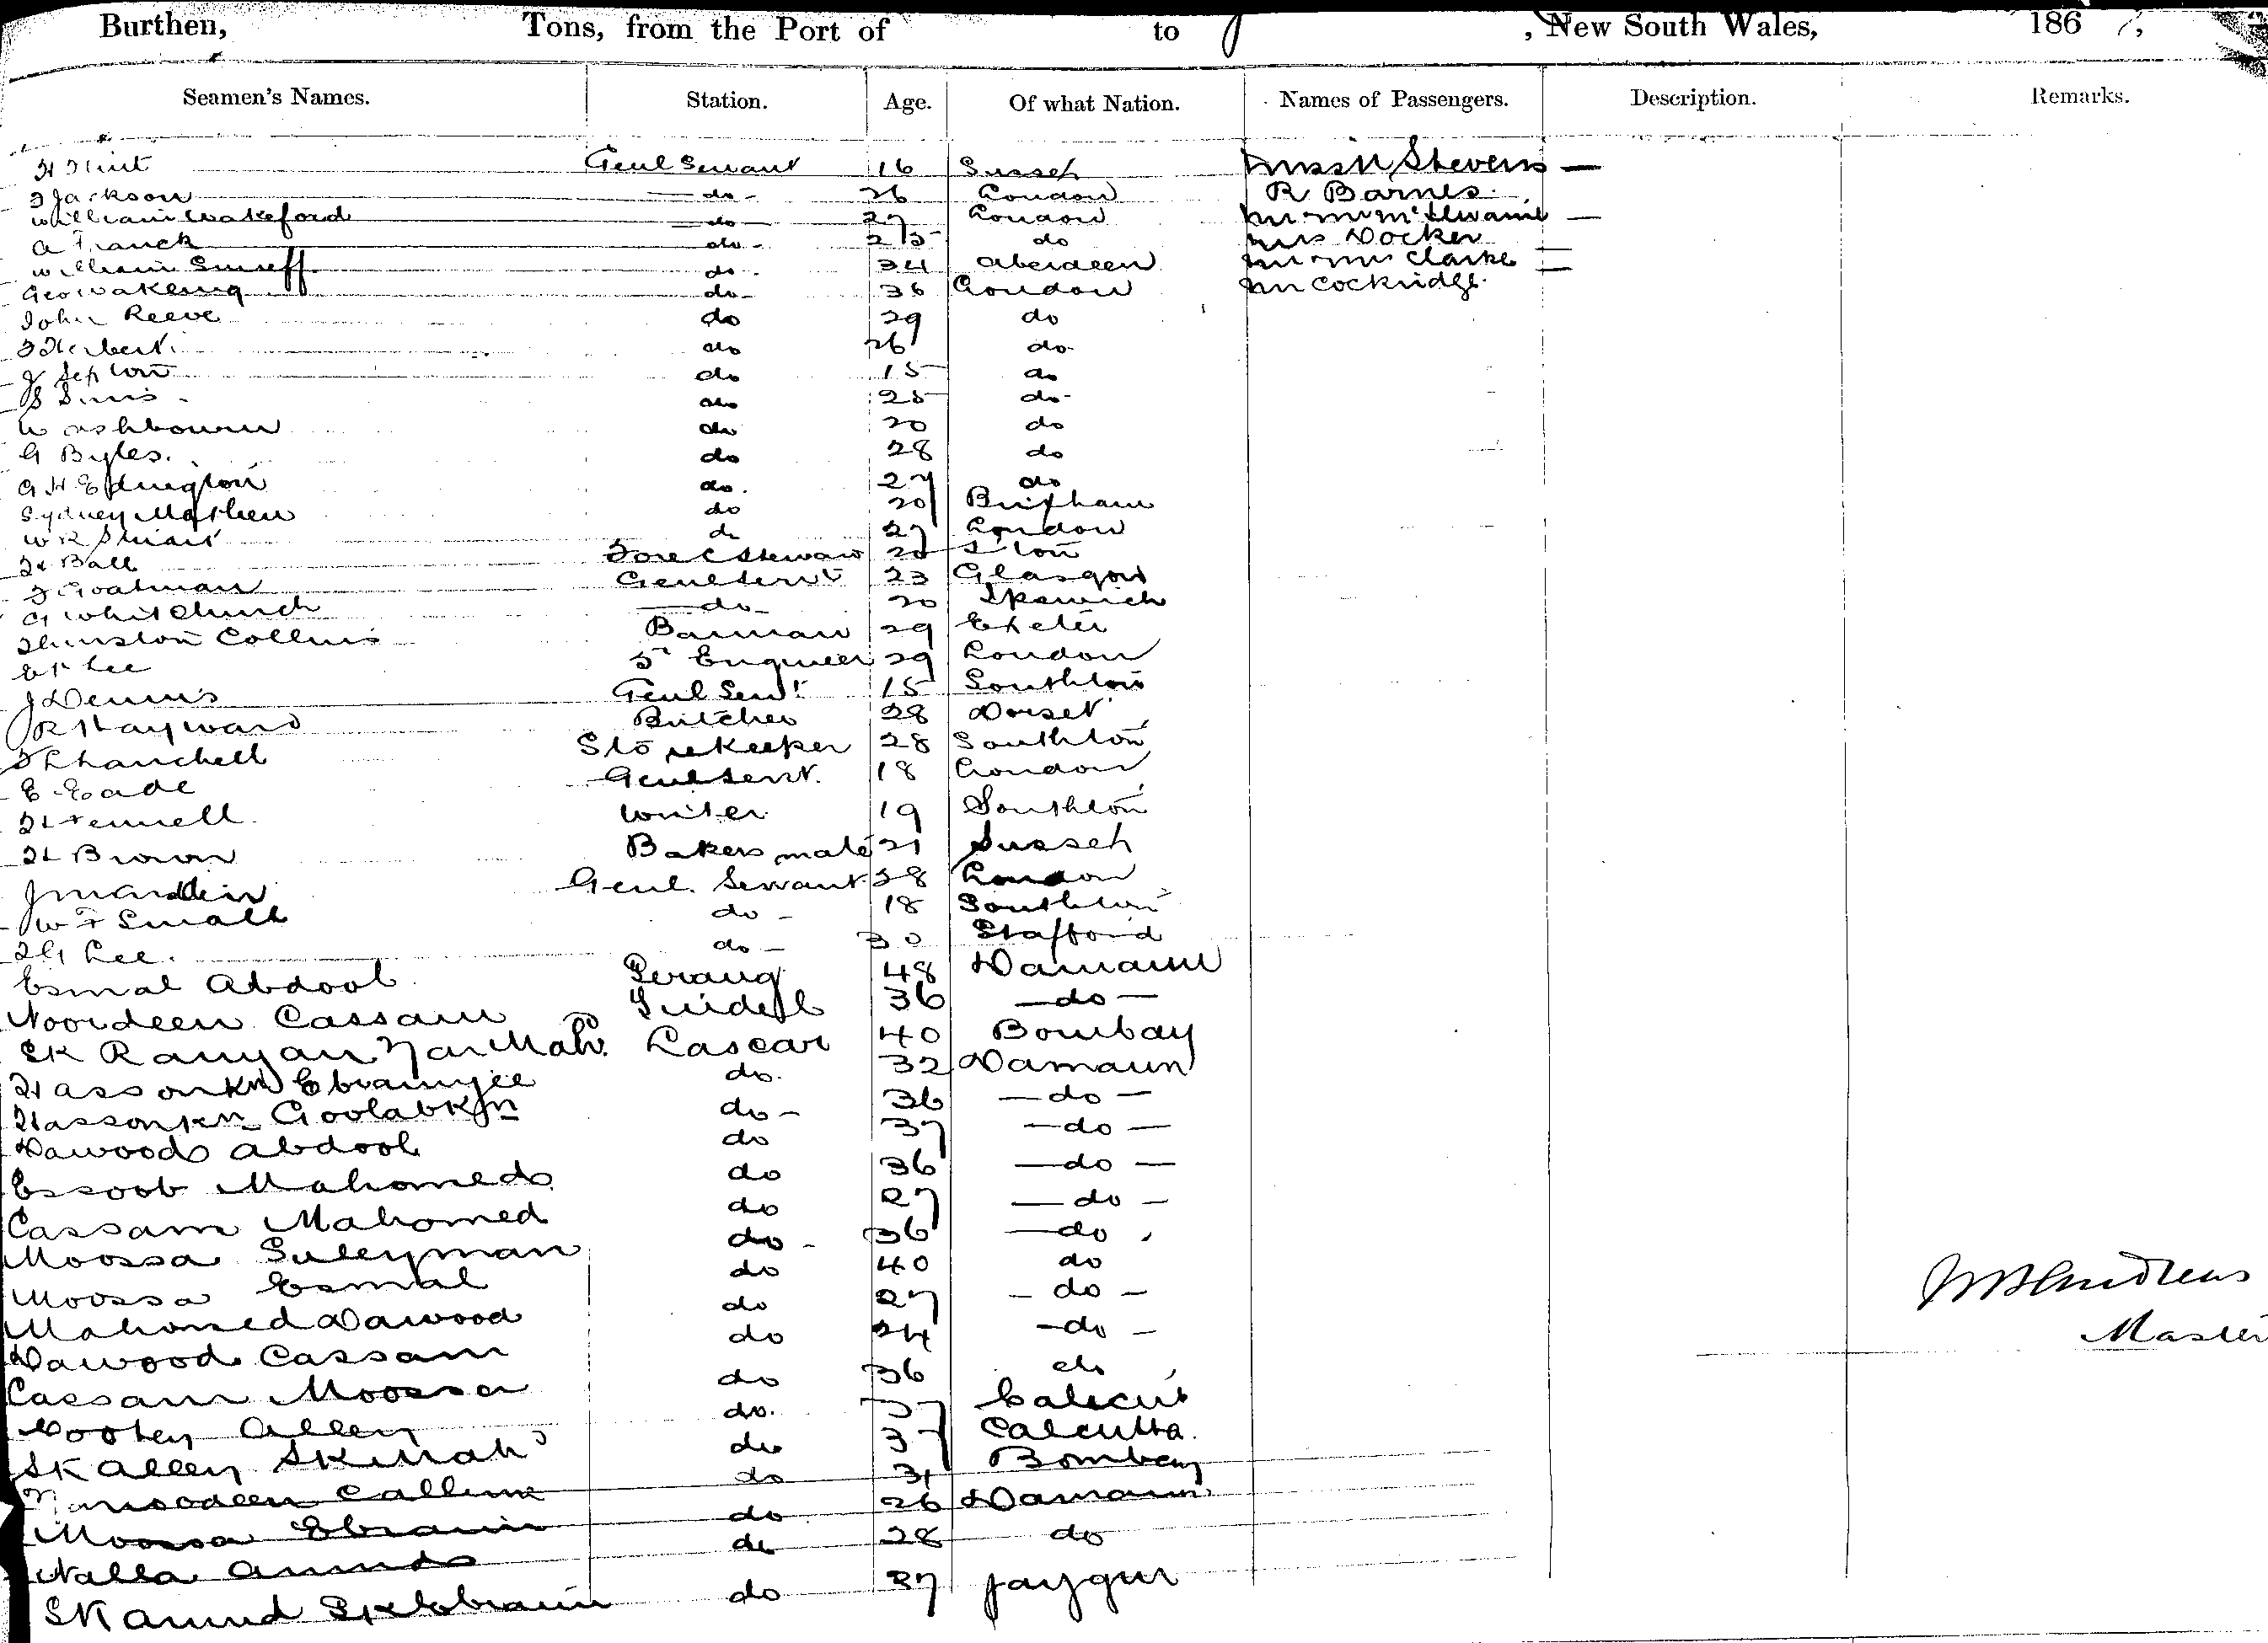 Burthen, Tons, from the Port of to , New South Wales, 186 ,
Seamen's Names. Station. Age. Of what Nation. Names of Passengers. Description. Remarks.
H Flint Genl Servant 16 Sussex Stevens —
Jackson — do - 26 London R Barnes
William Wakeford — do — 27 London —
A Franck do - 25 do Mrs Docker
William do - 34 Aberdeen Clarke —
Geo Wakling do - 36 London Mr Cockridge
John Reeve do 29 do
Herbert do 26 do
do 15 do
Sims do 25 do
Washbourn do 20 do
G Byles do 28 do
G H Edrington do 27 do
Sydney Mathew do 20 Brixham
W R Stuart do 27 London
H Ball Fore C Steward
Goatman Genl Servt 23 Glasgow
G Whitchurch — do - 20 Ipswich
Thurston Collins Barman 29 Exeter
Lee 5th Engineer 29 London
J Dennis Genl Servt 15 Southton
R Hayward Butcher 28 Dorset
Storekeeper 28 Southton
E Eade Genl Servt 18 London
Writer 19 Southton
H Brown Bakers mate 21 Sussex
J Genl. Servant 28 London
W F Small do - 18 Southton
Lee do - 30 Stafford
Esmal Abdool Serang 48 Damaun
Noordeen Cassam Tindel 36 — do —
SK Lascar 40 Bombay
Hassonkn Ebramjee do 32 Damaun
Hassonkn Goolabkn do - 36 — do —
Dawood Abdool do 37 — do —
Essoob Mahomed do 36 — do —
Cassam Mahomed do 27 — do -
Moossa Suleyman do - 36 — do
Moossa Esmal do 40 do
Mahomed Dawood do 27 - do -
Dawood Cassam do 24 - do -
Cassam Moossa do 36 do
Alley do 37 Calicut
SK Alley SK do 37 Calcutta
do 31 Bombay
Moossa Ebraim do 26 Damaun
Nalla do 28 do
SK SK Ebraim do 27 Jaygur
Andrews
Master